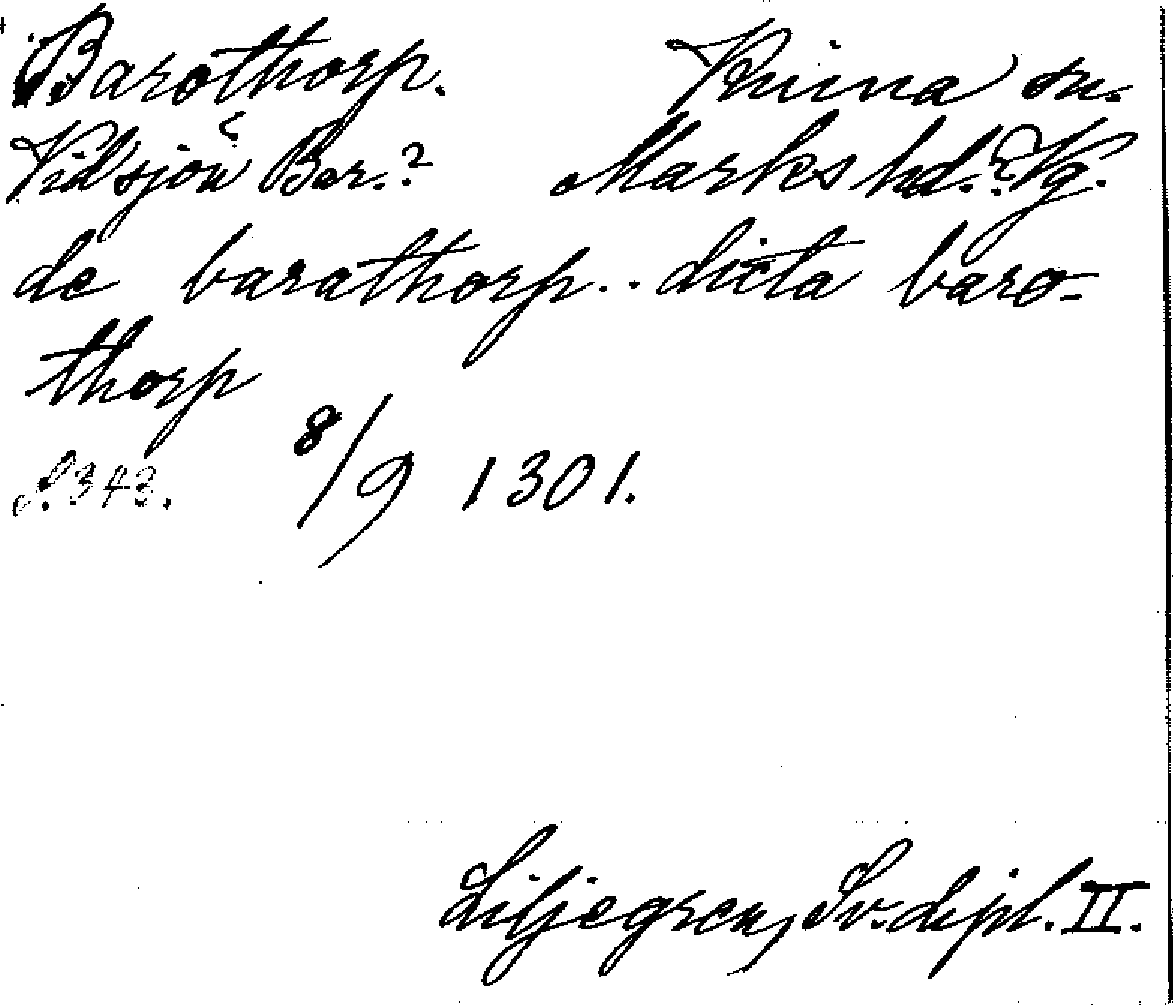 Barothorp. Kinna sn.
Vid sjön Bar.? Marks hd.? Vg.
de barathorp.. dicta baro-
thorp
S. 343. 8/9 1301.
Liljegren, Sv. dipl. II.